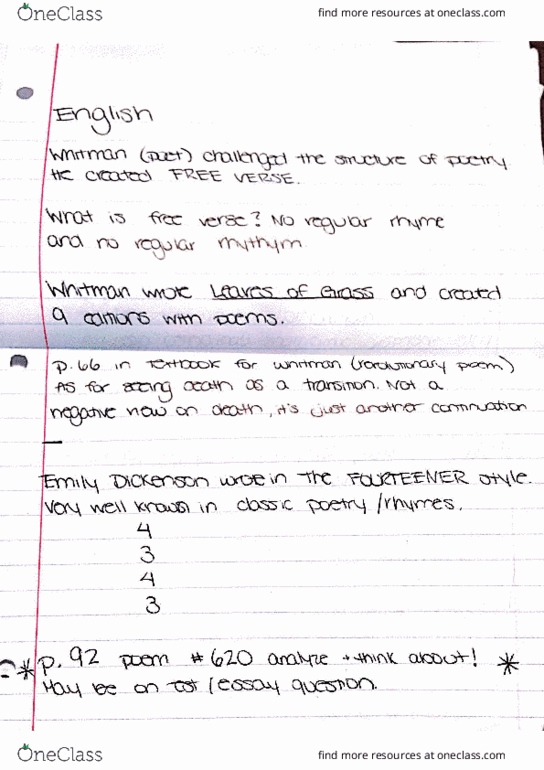 OneClass find more resources at oneclass.com
English
Whitman (poet) challenged the structure of poetry
He created FREE VERSE.
What is free verse? No regular rhyme
and no regular rhythym.
Whitman wrote Leaves of Grass and created
9 editions with poems.
p.66 in textbook for Whitman (revolutionary poem)
As for seeing death as a transition. Not a
negative view on death, it's just another continuation
Emily Dickenson wrote in the FOURTEENER style.
Very well known in classic poetry/rhymes.
4
3
4
3
* p. 92 poem #620 analyze + think about! *
May be on test/essay question.
OneClass find more resources at oneclass.com